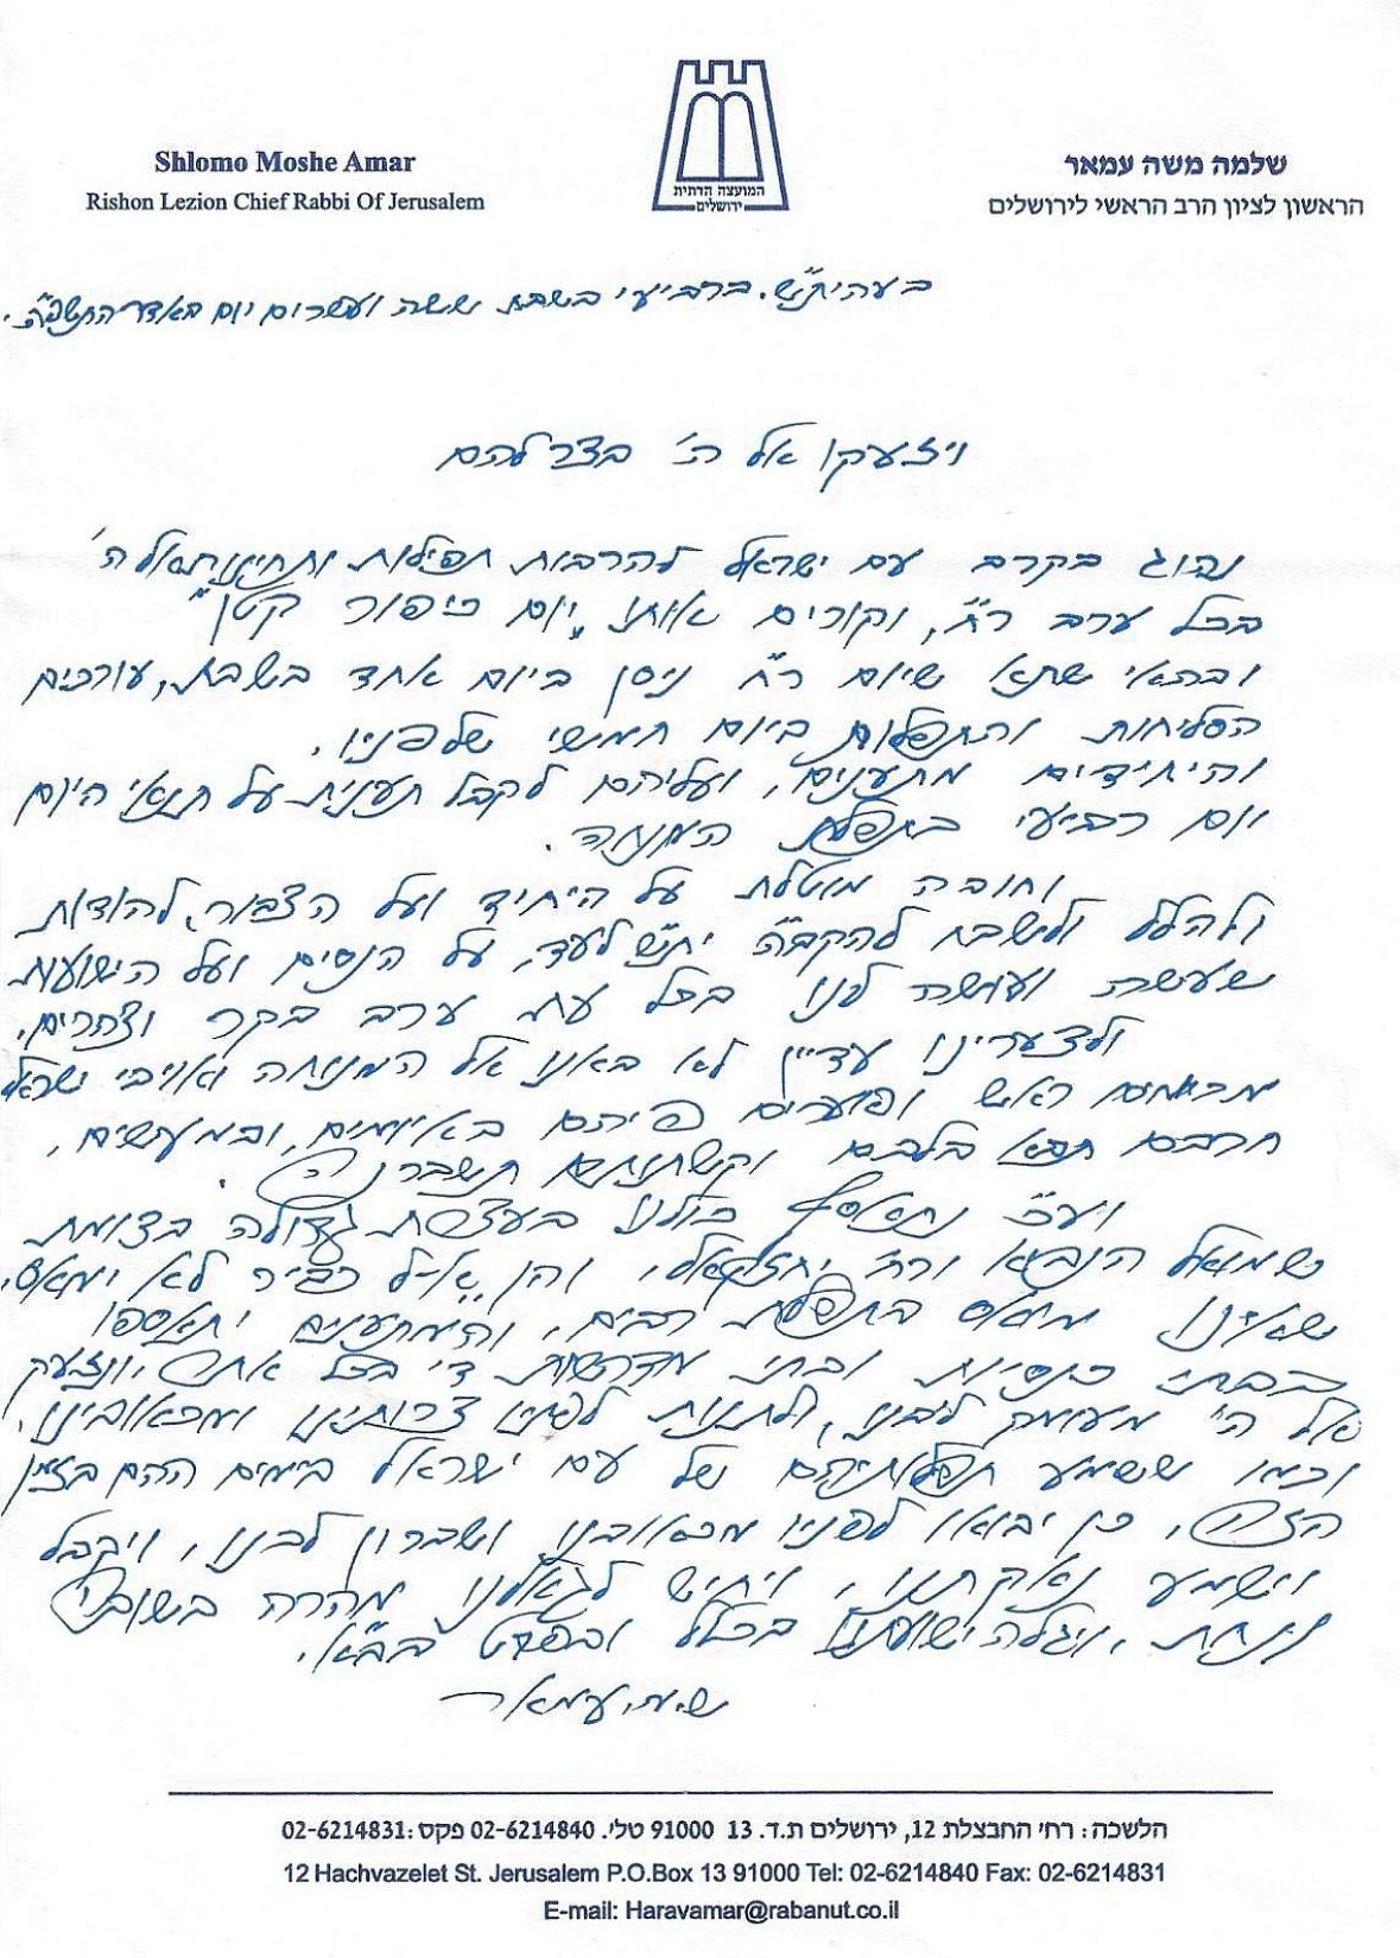 Shlomo Moshe Amar
Rishon Lezion Chief Rabbi Of Jerusalem
המועצה הדתית
ירושלים
שלמה משה עמאר
הראשון לציון הרב הראשי לירושלים
בעהית"ש. ברביעי בשבת ששה ועשרים יום באדר התשפ"ה.
ויזעקו אל ה' בצר להם
נהוג בקרב עם ישראל להרבות תפילות ותחינות אל ה'
בכל ערב ר"ח, וקורים אותו "יום כיפור קטן"
ובהאי שתא שיום ר"ח ניסן ביום אחד בשבת, עורכים
הסליחות והתפלות ביום חמישי שלפניו.
והיחידים מתענים, ועליהם לקבל תענית על תנאי היום
יום רביעי בתפלת המנחה.
וחובה מוטלת על היחיד ועל הצבור, להודות
ולהלל ולשבח להקב"ה ית"ש לעד, על הנסים ועל הישועות
שעשה ועושה לנו בכל עת ערב בקר וצהרים.
ולצערינו עדיין לא באנו אל המנוחה ואויבי ישראל
ראש ופוערים פיהם באיומים, ובמעשים,
חרבם תבא בלבם וקשתותם תשברנה.
ויע"כ נתאסף כולנו בעצרת גדולה בצומת
שמואל הנביא ורח' יחזקאל, והן "א-ל כביר לא ימאס,
שאינו מואס בתפלת רבים", והמתענים יתאספו
בבתי כנסיות ובתי מדרשות די בכל אתר, ונזעק
אל ה' מעומק ליבנו, ולתנות לפניו צרותינו ומכאובינו,
וכמו ששמע תפלותיהם של עם ישראל בימים ההם בזמן
הזה, כן יבואו לפניו מכאובנו ושברון לבנו, ויקבל
וישמע נאקתנו, ויחיש לגאלנו מהרה בשובה
ונחת, ויגלה ישועתו בכלל ובפרט בב"א.
ש.מ. עמאר
הלשכה: רחי החבצלת 12, ירושלים ת.ד. 13 91000 טלי. 02-6214840 פקס: 02-6214831
12 Hachvazelet St. Jerusalem P.O.Box 13 91000 Tel: 02-6214840 Fax: 02-6214831
E-mail: Haravamar@rabanut.co.il